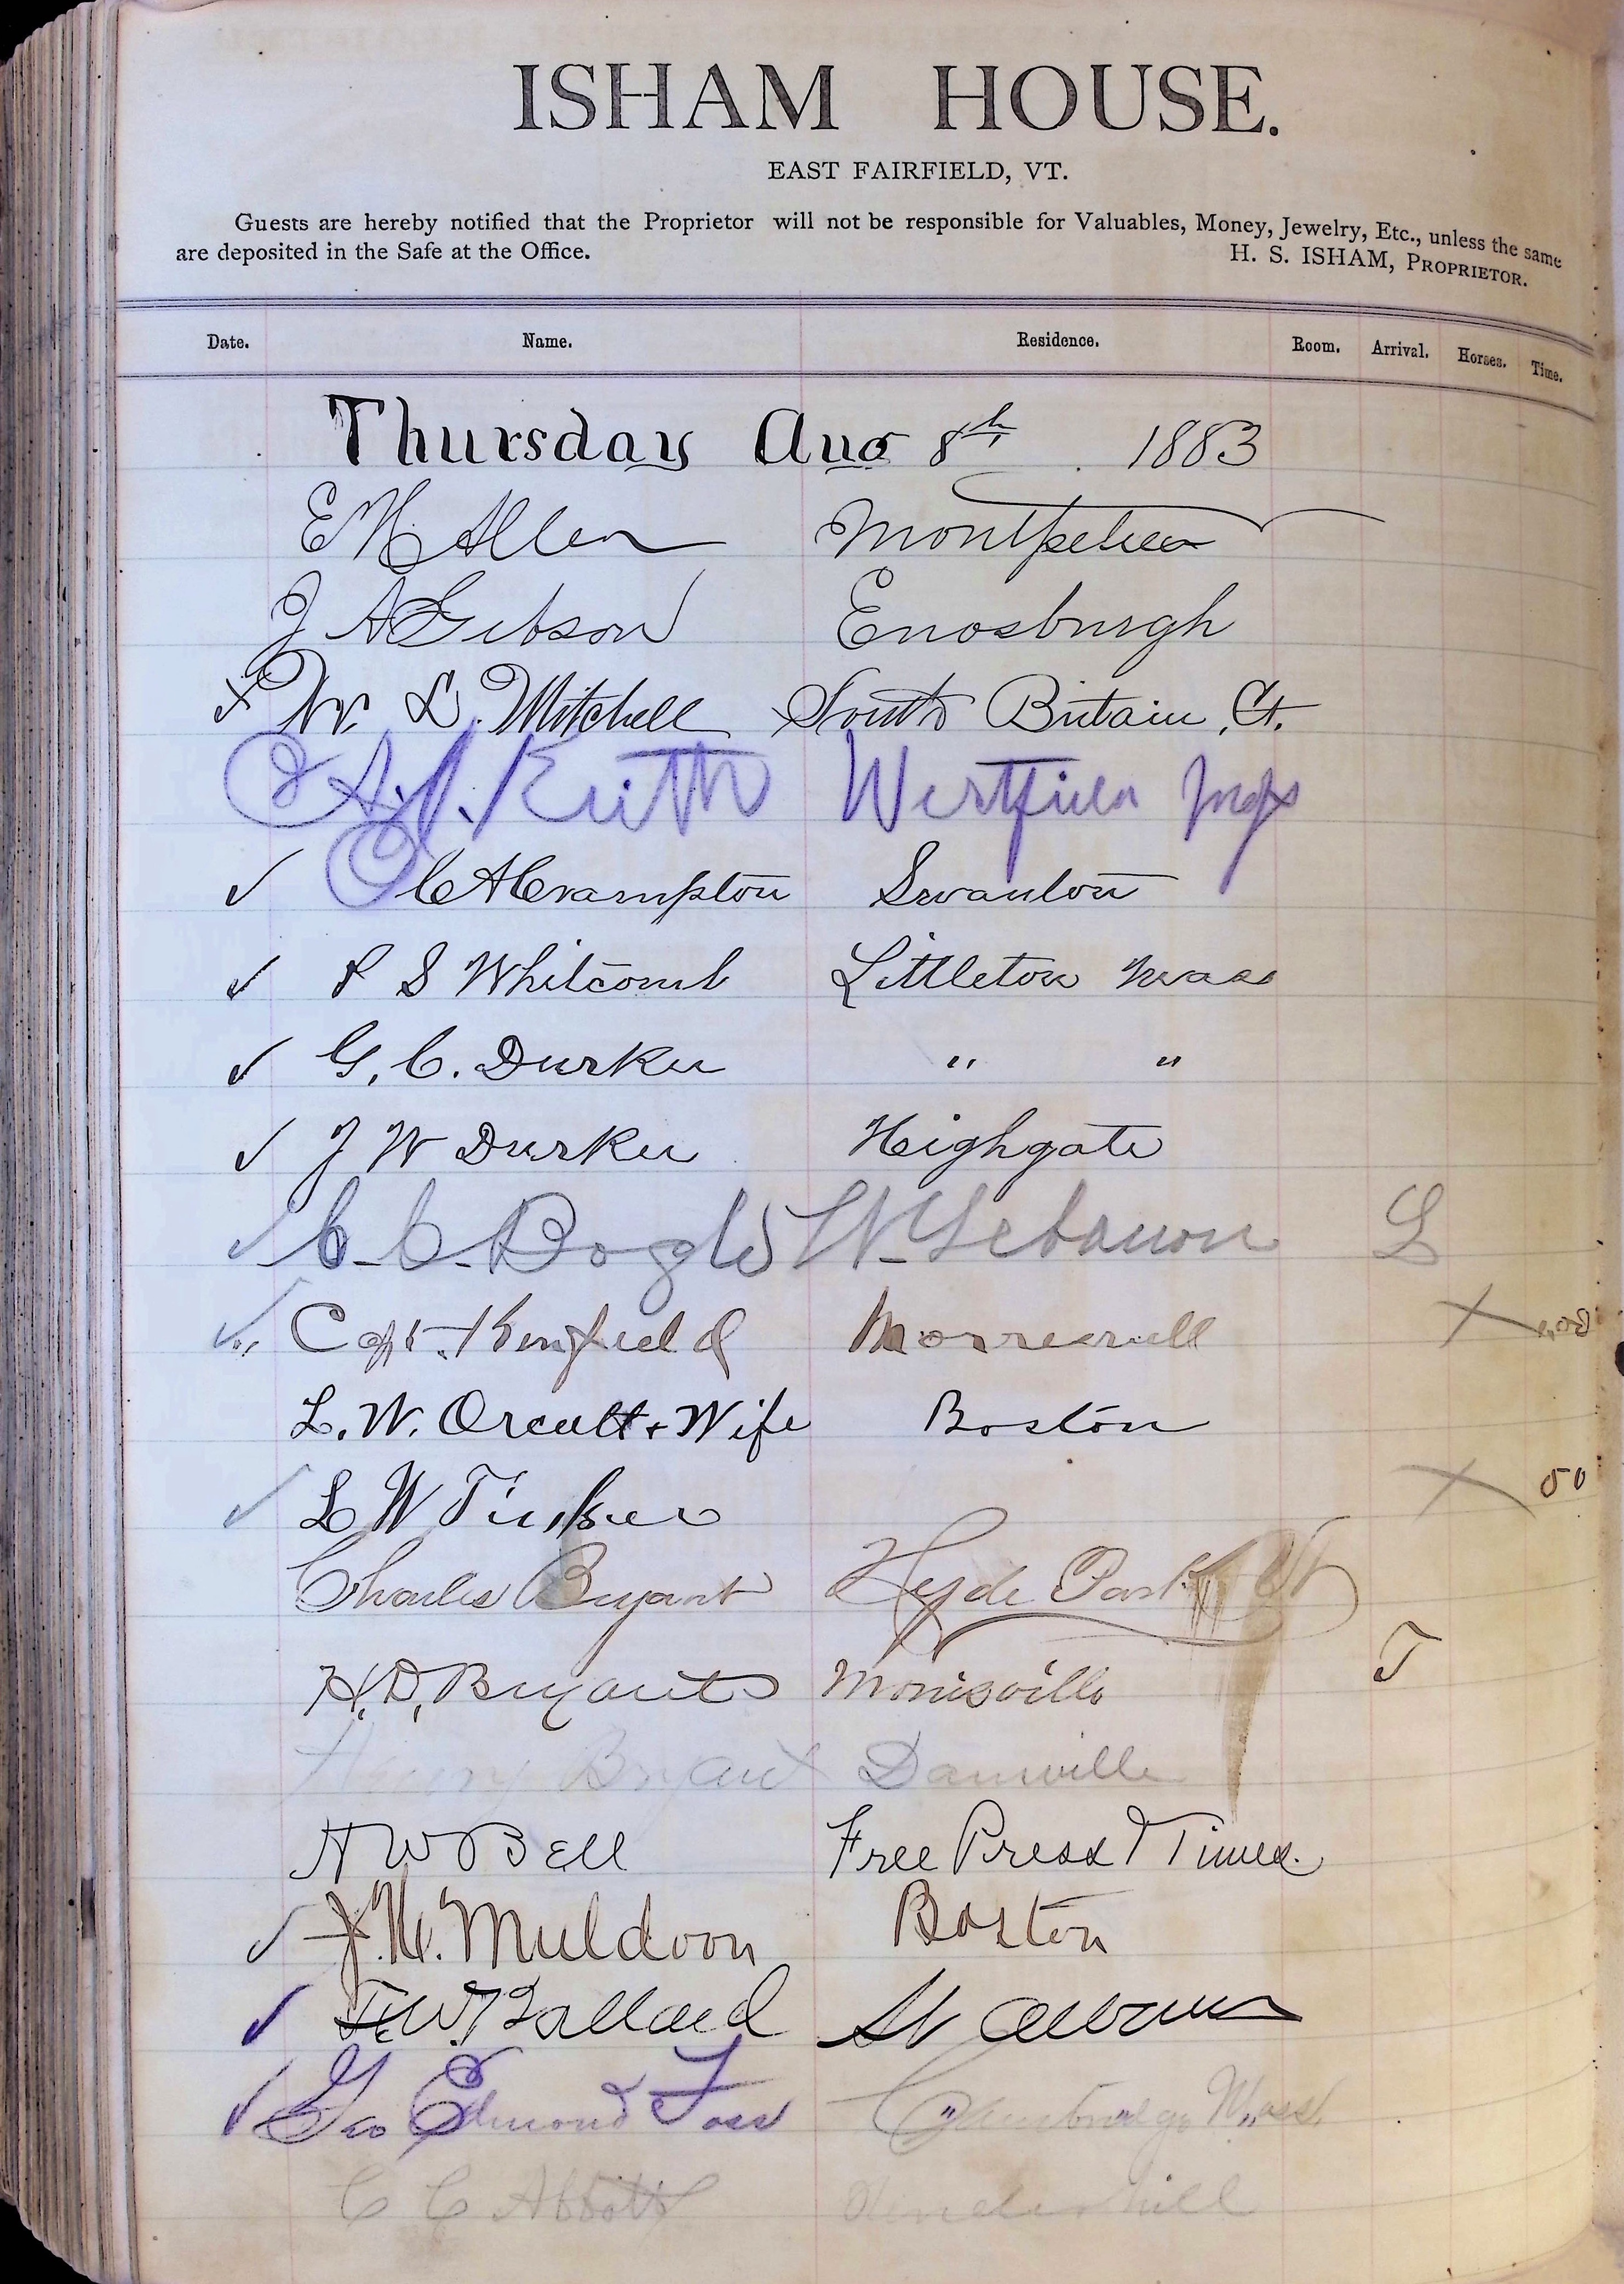 ISHAM HOUSE.
EAST FAIRFIELD, VT.
Guests are hereby notified that the Proprietor will not be responsible for Valuables, Money, Jewelry, Etc., unless the same
are deposited in the Safe at the Office.
H. S. ISHAM, PROPRIETOR.
Date. Name. Residence. Room. Arrival. Horses. Time.
Thursday Aug 8th 1883
E H Allen Montpelier
J A Gibson Enosburgh
W. L. Mitchell South Britain, Ct.
A. J. Keith Westfield
C A Crampton Swanton
P S Whitcomb Littleton Mass
G. C. Durkee " "
J W Durkee Highgate
C. C. Bogle W. Lebanon L
Capt. Kenfield
L. W. Orcutt & Wife Boston
L W Tinker 50
Charles Bryant Hyde Park Vt
H. D. Bryant Morrisville T
Henry Bryant Danville
A W Bell Free Press & Times.
J. H. Muldoon Boston
F. W. Ballard St Albans
Geo Edmond Foss Cambridge Mass.
C C Abbott Underhill